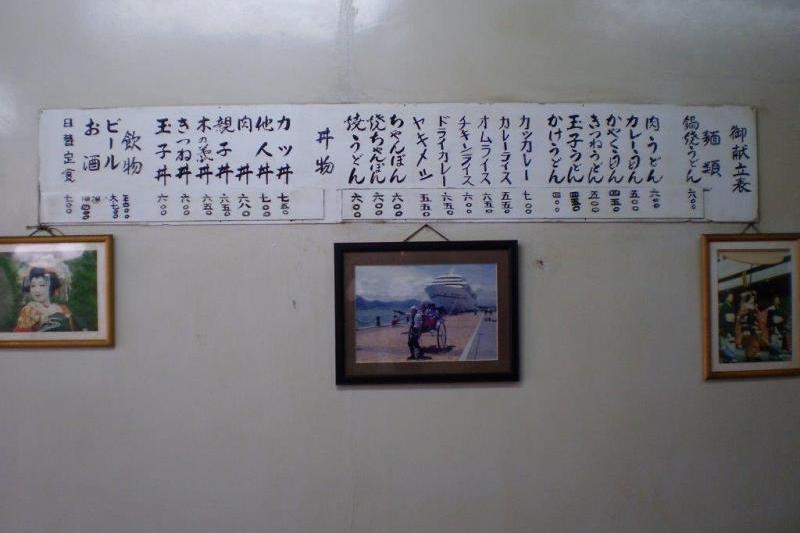 御献立表
麺類
鍋焼うどん 六〇〇
肉うどん 六〇〇
カレーうどん 五〇〇
かやくうどん 四五〇
きつねうどん 五〇〇
玉子うどん 四五〇
かけうどん 四〇〇
カツカレー 七〇〇
カレーライス 五五〇
オムライス 六五〇
チキンライス 六〇〇
ドライカレー 六五〇
ヤキメシ 五五〇
ちゃんぽん 六〇〇
焼ちゃんぽん 六〇〇
焼うどん 六〇〇
丼物
カツ丼 七五〇
他人丼 七〇〇
肉丼 六八〇
親子丼 六五〇
木の葉丼 六五〇
きつね丼 六〇〇
玉子丼 六〇〇
飲物
ビール
お酒
日替定食 七〇〇